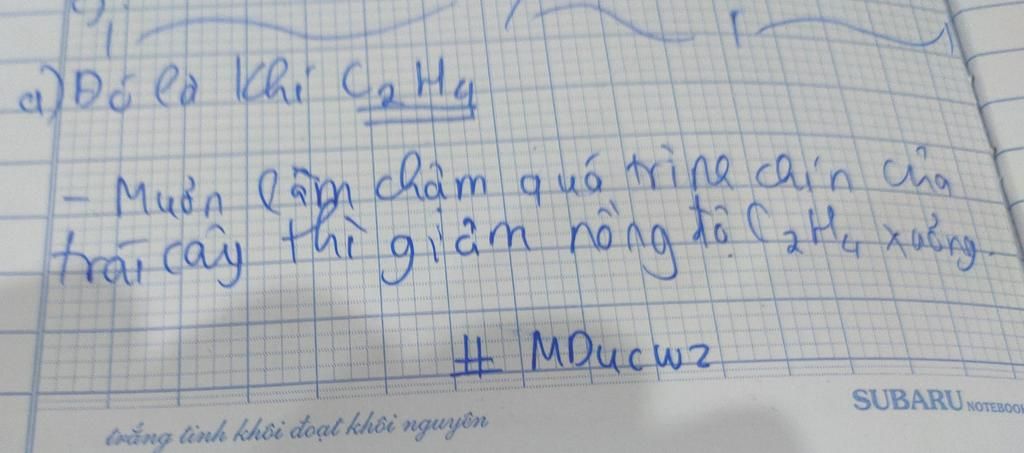 a) Đó là khí C₂H₄
- Muốn làm chậm quá trình chín của
trái cây thì giảm nồng độ C₂H₄ xuống.
# MDucwz
SUBARU NOTEBOOK
trắng tinh khôi đoạt khôi nguyên